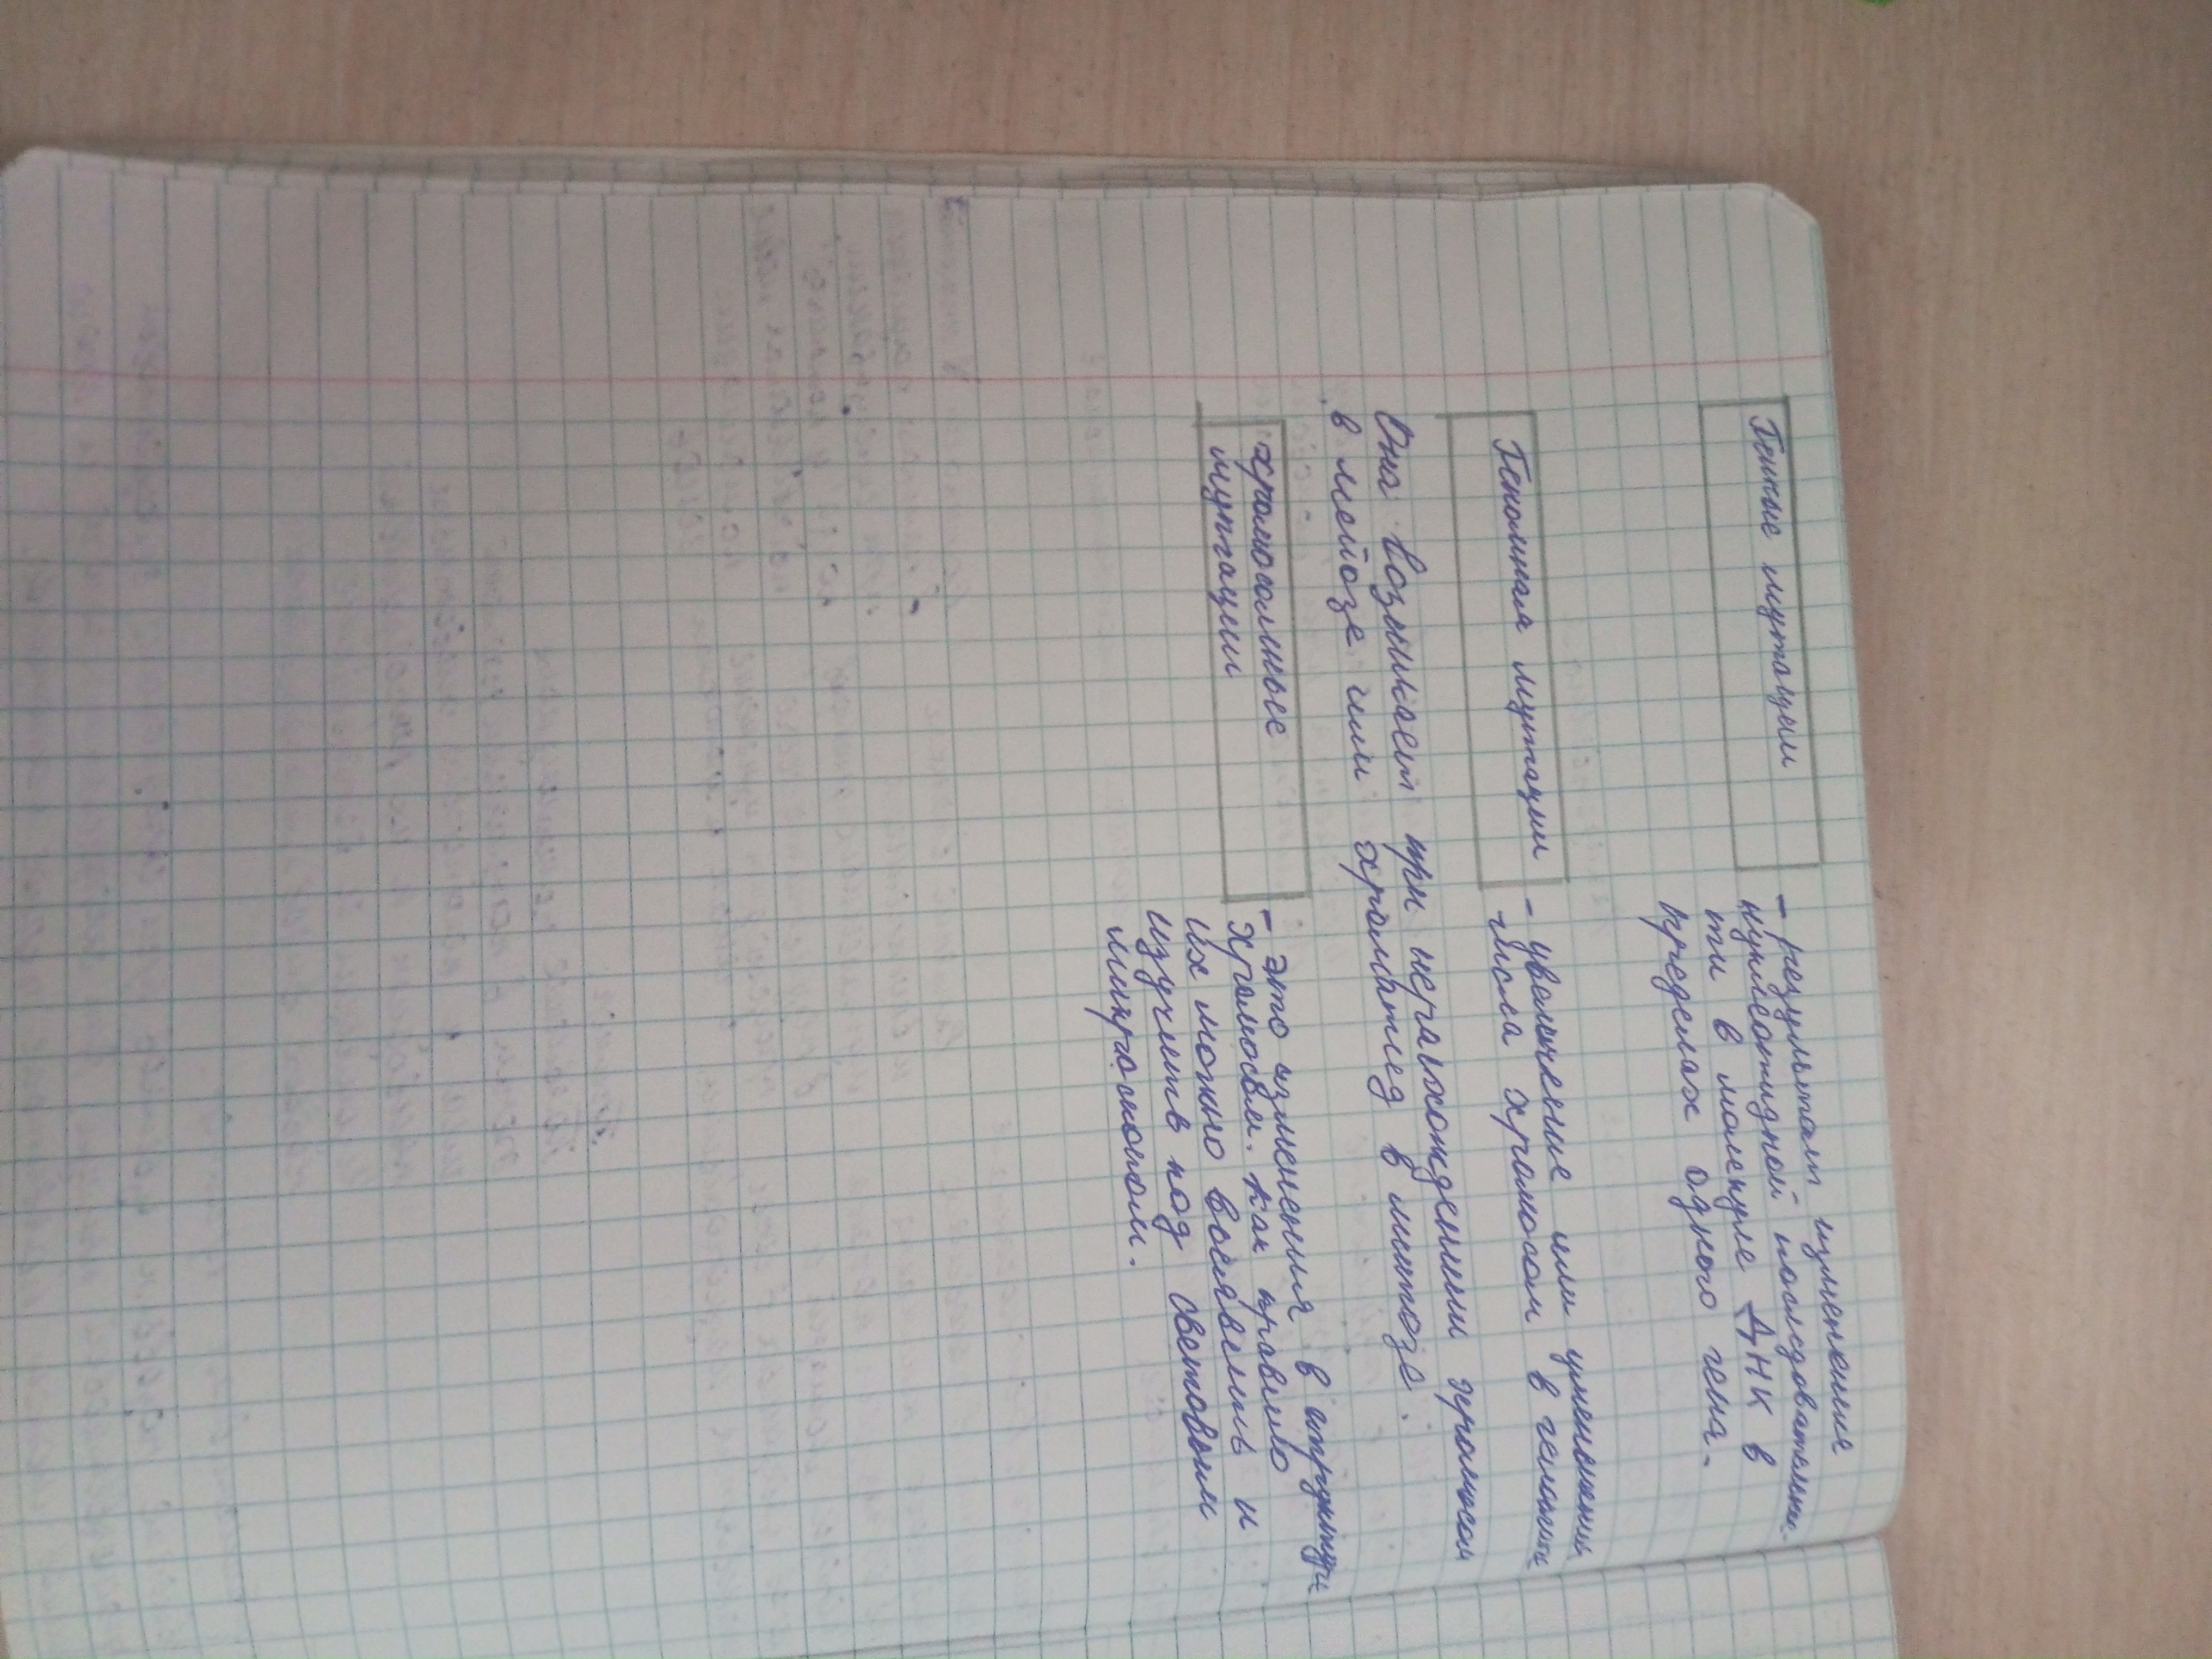 Генные мутации
- результат изменения
нуклеотидной последовательнос-
ти в молекуле ДНК в
пределах одного гена.
Геномная мутации
- увеличение или уменьшение
числа хромосом в геноме
Она возникает при нерасхождении хромосом
в мейозе или хроматид в митозе.
хромосомные
мутации
- это изменения в структуре
хромосом. Как правило
их можно выявить и
изучить под световым
микроскопом.